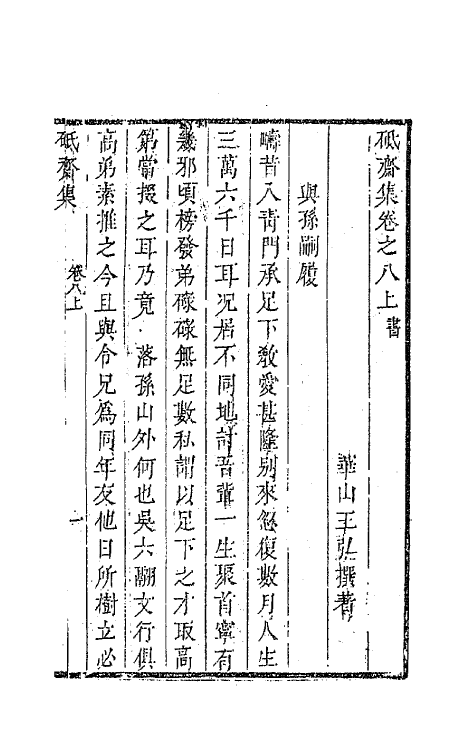 砥齋集卷之八上 書
華山王弘撰著
與孫嗣履
疇昔入靑門承足下敎愛甚隆別來忽復數月人生
三萬六千日耳况居不同地計吾輩一生聚首寧有
幾邪頃榜發弟碌碌無足數私謂以足下之才取高
第當掇之耳乃竟落孫山外何也吳六翮文行俱
高弟素推之今且與令兄爲同年友他日所樹立必
砥齋集 卷八上 一